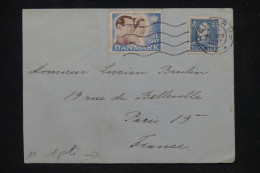 DANMARK
Monsieur Lucien Brulin
19 rue de Belleville
Paris 19ème
France
1 pli